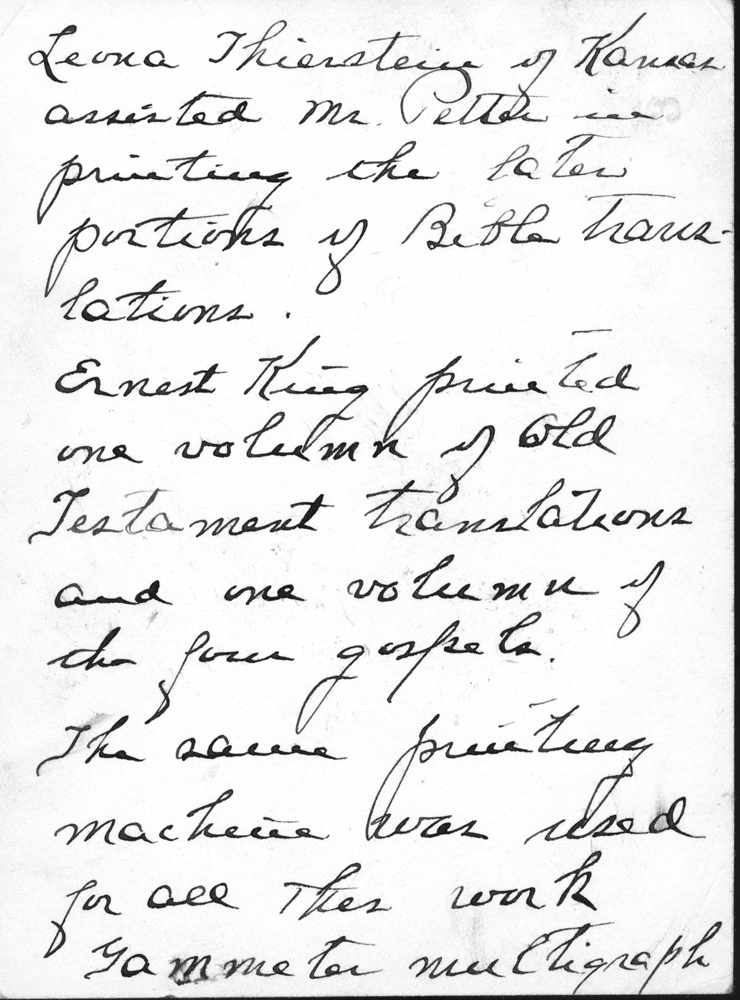 Leona Thierstein of Kansas
assisted Mr. Petter in
printing the later
portions of Bible trans-
lations.
Ernest King printed
one volumn of Old
Testament translations
and one volumn of
the four gospels.
The same printing
machine was used
for all this work
Gammeter multigraph